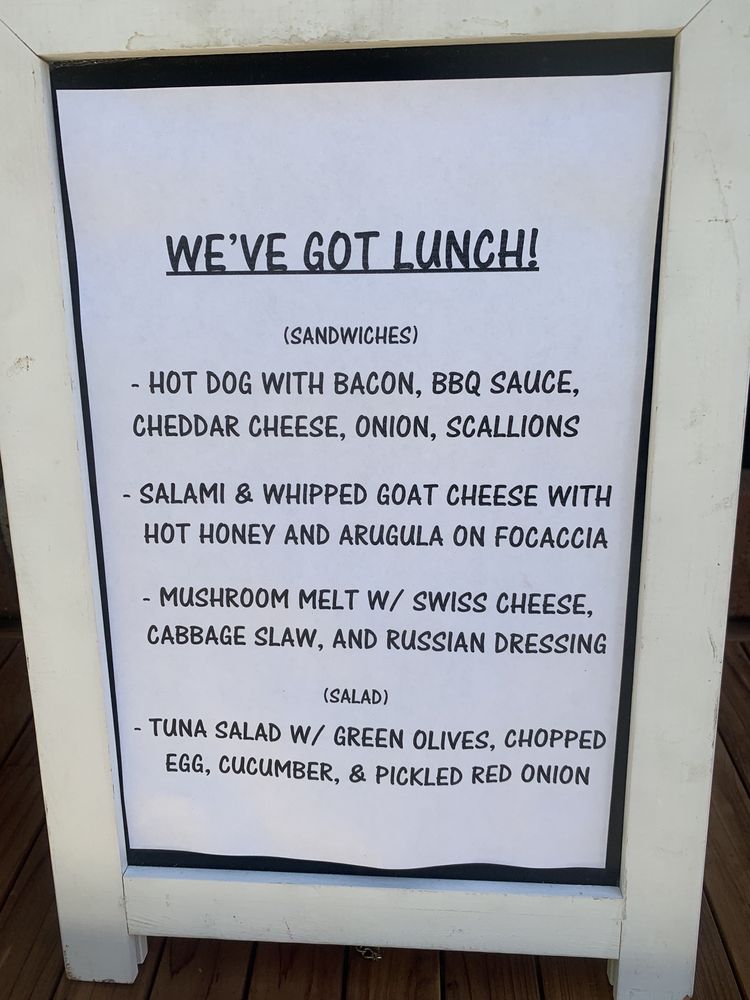 WE'VE GOT LUNCH!
(SANDWICHES)
- HOT DOG WITH BACON, BBQ SAUCE,
CHEDDAR CHEESE, ONION, SCALLIONS
- SALAMI & WHIPPED GOAT CHEESE WITH
HOT HONEY AND ARUGULA ON FOCACCIA
- MUSHROOM MELT W/ SWISS CHEESE,
CABBAGE SLAW, AND RUSSIAN DRESSING
(SALAD)
- TUNA SALAD W/ GREEN OLIVES, CHOPPED
EGG, CUCUMBER, & PICKLED RED ONION